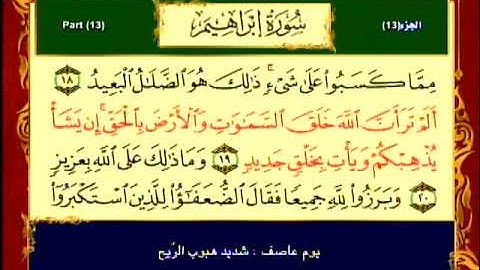 Part (13)
سُورَةُ إِبْرَاهِيم
الجزء(13)
مِمَّا كَسَبُوا۟ عَلَىٰ شَىْءٍ ۚ ذَٰلِكَ هُوَ ٱلضَّلَـٰلُ ٱلْبَعِيدُ ١٨
أَلَمْ تَرَ أَنَّ ٱللَّهَ خَلَقَ ٱلسَّمَـٰوَٰتِ وَٱلْأَرْضَ بِٱلْحَقِّ ۚ إِن يَشَأْ
يُذْهِبْكُمْ وَيَأْتِ بِخَلْقٍ جَدِيدٍ ١٩ وَمَا ذَٰلِكَ عَلَى ٱللَّهِ بِعَزِيزٍ
٢٠ وَبَرَزُوا۟ لِلَّهِ جَمِيعًا فَقَالَ ٱلضُّعَفَـٰٓؤُا۟ لِلَّذِينَ ٱسْتَكْبَرُوٓا۟
يوم عاصف : شديد هبوب الرّيح